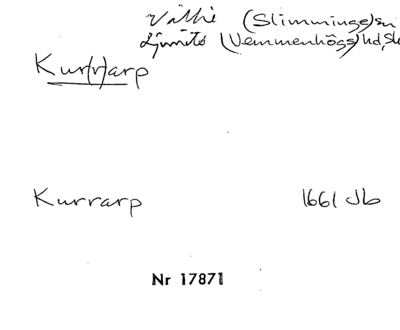 Villie (Slimminge) sn
Ljunits (Vemmenhögs) hd, Sk
Kur(r)arp
Kurrarp 1661 Jb
Nr 17871